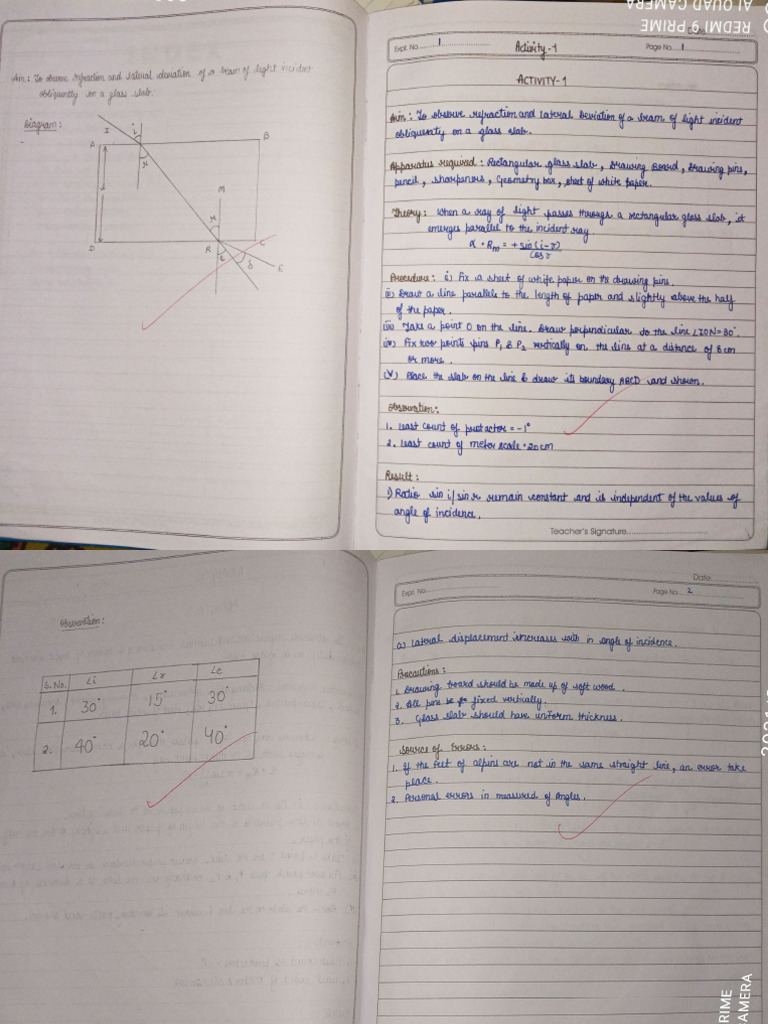 Aim: To observe refraction and lateral deviation of a beam of light incident
obliquently on a glass slab.
Diagram:
I
i
A
B
r
M
r
D
R
C
e
δ
E
REDMI 9 PRIME
AI QUAD CAMERA
Expt. No. 1
Activity-1
Page No. 1
ACTIVITY-1
Aim: To observe refraction and Lateral Deviation of a beam of light incident
obliquently on a glass slab.
Apparatus required: Rectangular glass slab, Drawing Board, Drawing pins,
pencil, sharpeners, Geometry box, sheet of white paper.
Theory: When a ray of light passes through a rectangular glass slab, it
emerges parallel to the incident ray.
= + sin(i-r)
cos r
Procedure: i) Fix a sheet of white paper on the drawing pins.
ii) Draw a line parallele to the length of paper and slightly above the half
of the paper.
iii) Take a point O on the line. Draw perpendicular to the line ∠ION=30°.
iv) Fix two points pins P1 & P2 vertically on the line at a distance of 8cm
or more.
(V) Place the slab on the line & draw its boundary ABCD and shown.
Observation:
1. Least count of protactor = -1°
2. Least count of meter scale = 20cm
Result:
1) Ratio sin i/sin r remain constant and is independent of the values of
angle of incidence.
Teacher's Signature
Observation:
S. No. ∠i ∠r ∠e
1. 30° 15° 30°
2. 40° 20° 40°
Date
Expt. No.
Page No. 2
2) Lateral displacement increases with in angle of incidence.
Precautions:
1. Drawing board should be made up of soft wood.
2. All pins be fixed vertically.
3. Glass slab should have uniform thickness.
Source of Errors:
1. If the feet of alpins are not in the same straight line, an error take
place.
2. Personal errors in measured of Angles.
RIME
AMERA